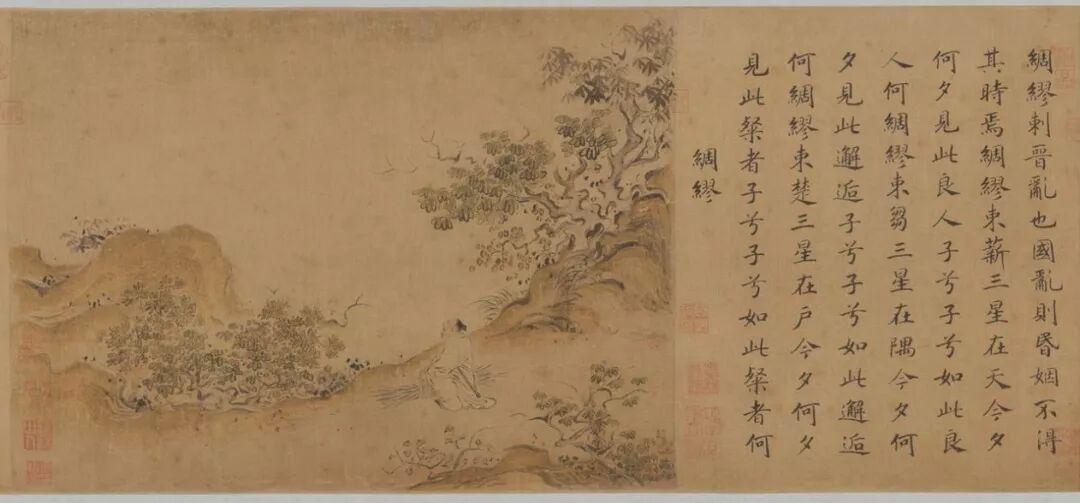 綢繆刺晉亂也國亂則昬姻不得
其時焉綢繆束薪三星在天今夕
何夕見此良人子兮子兮如此良
人何綢繆束芻三星在隅今夕何
夕見此邂逅子兮子兮如此邂逅
何綢繆束楚三星在戶今夕何夕
見此粲者子兮子兮如此粲者何
綢繆